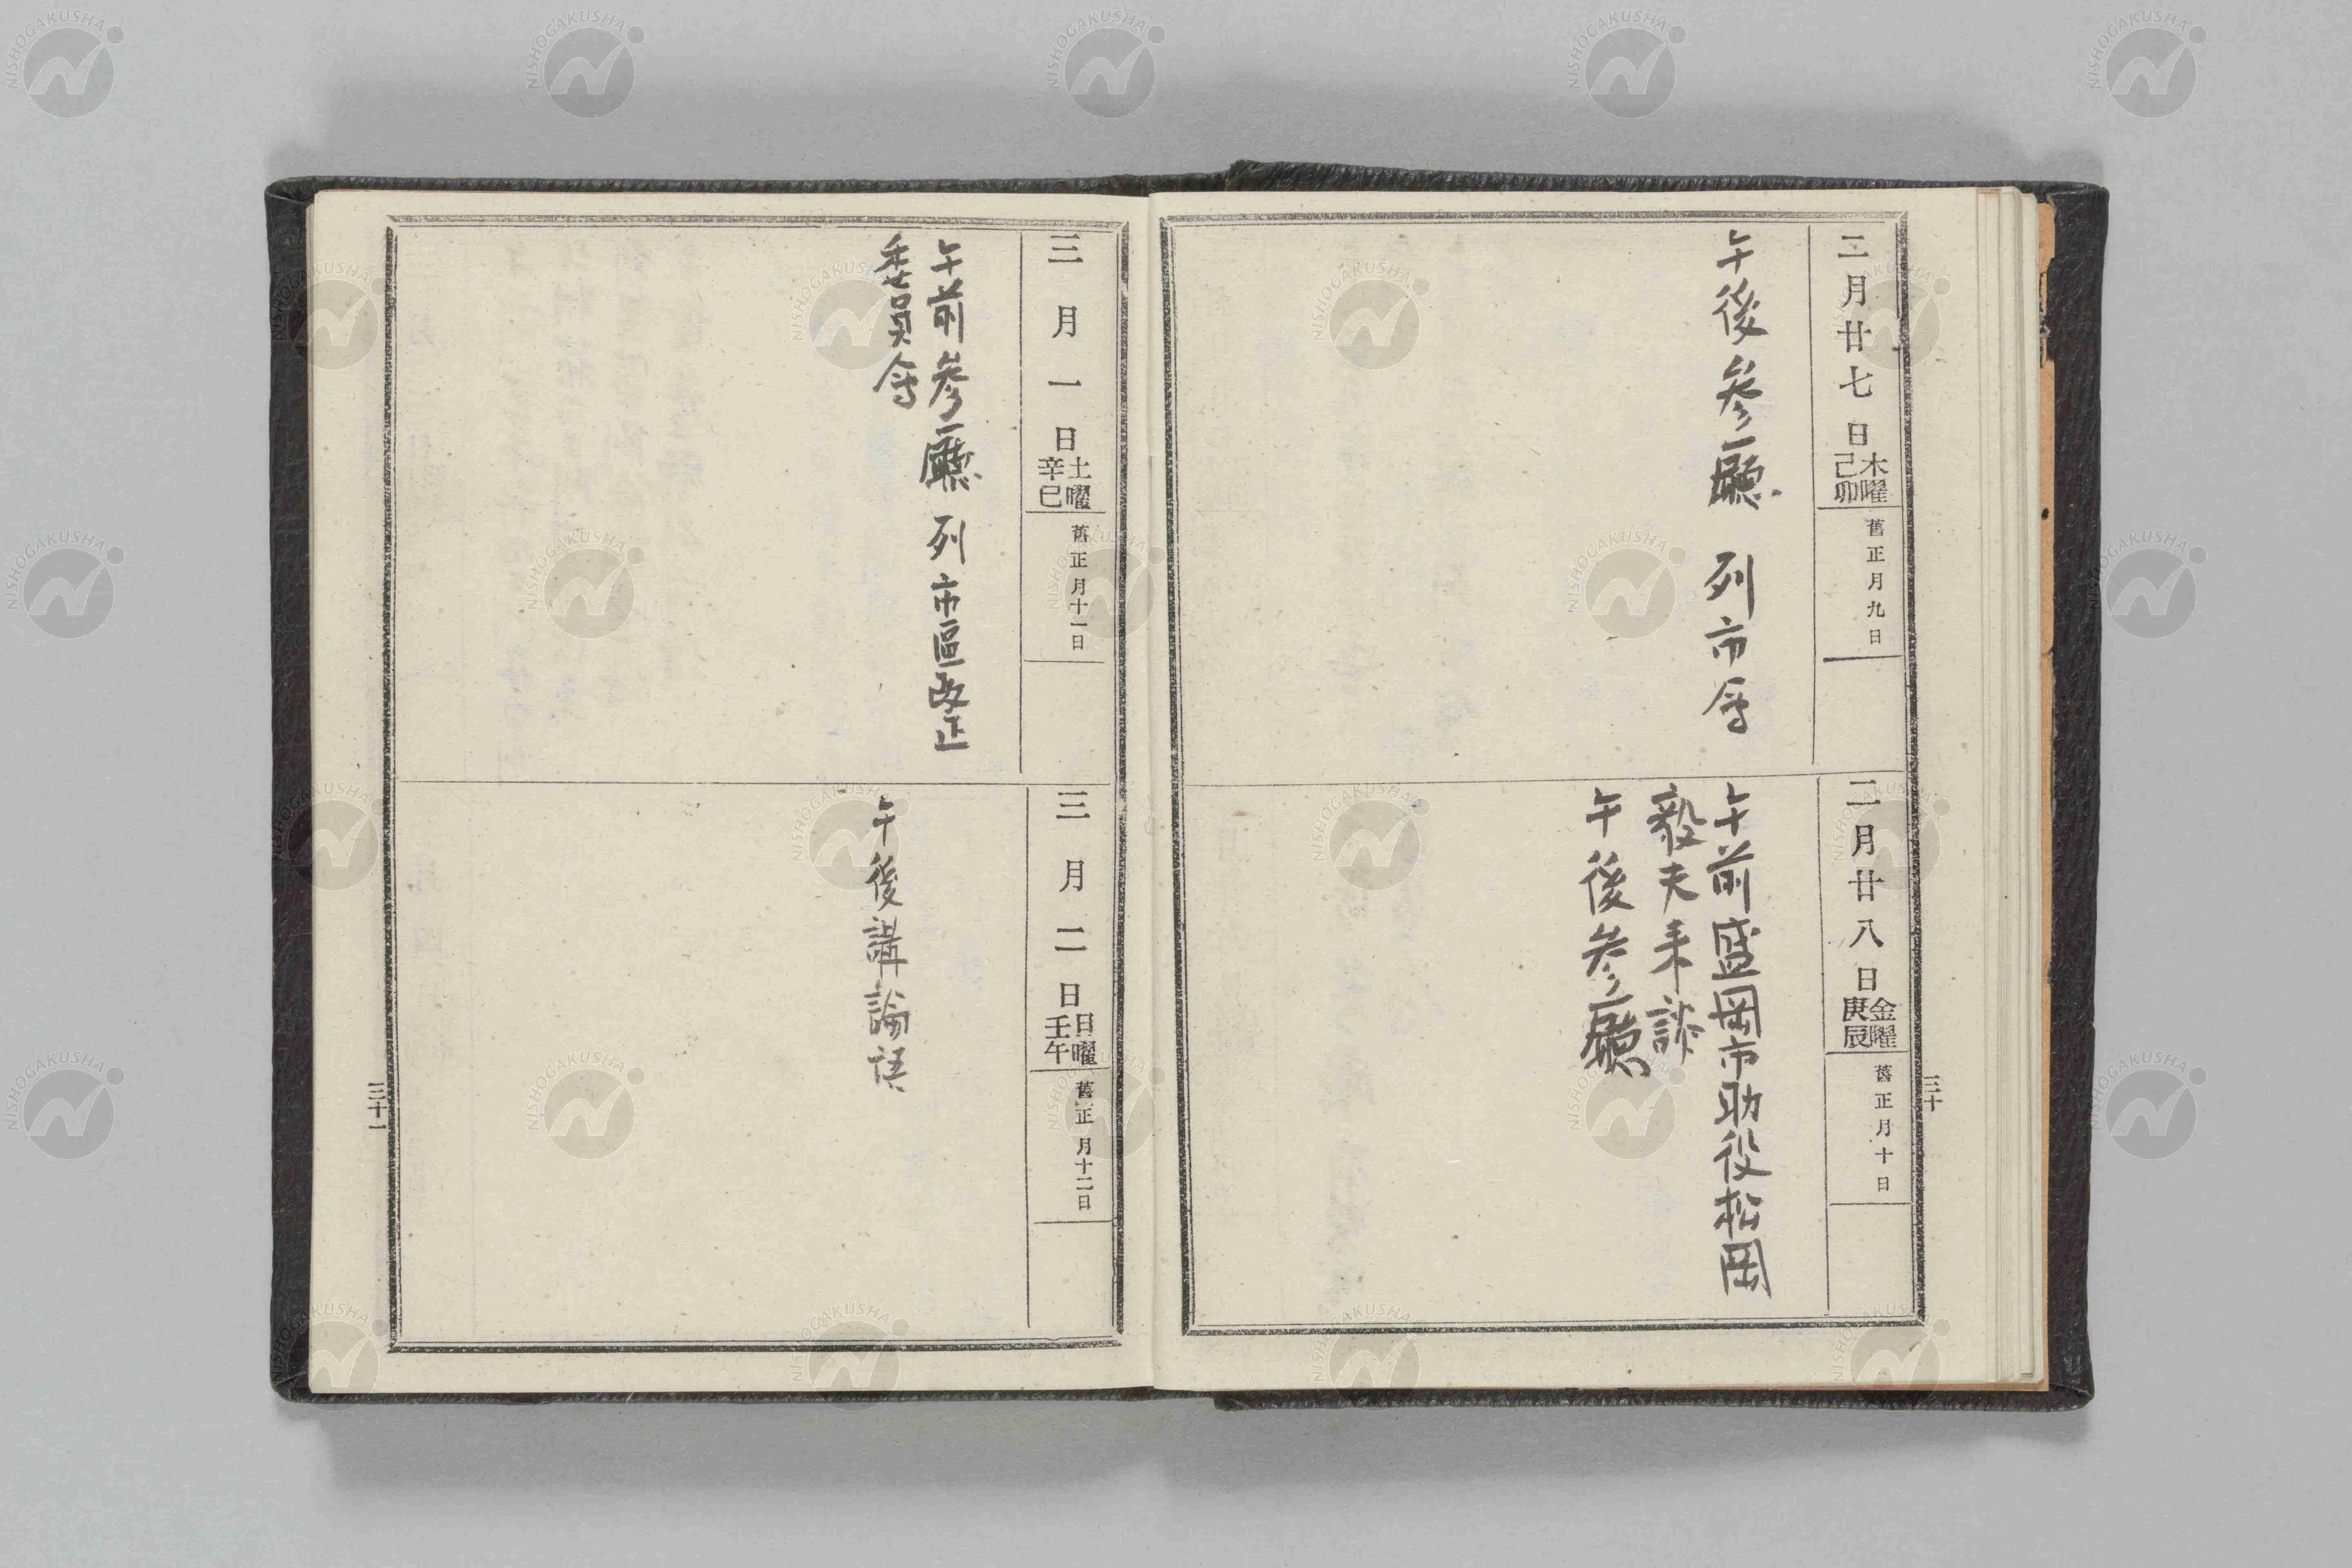 二月廿七日
木曜
己卯
舊正月九日
午後參廳 列市会
二月廿八日
金曜
庚辰
舊正月十日
午前盛岡市助役松岡
毅夫来談
午後參廳
三十
三月一日
土曜
辛巳
舊正月十一日
午前參廳 列市區改正
委員会
三月二日
日曜
壬午
舊正月十二日
午後講論語
三十一
NISHOGAKUSHA